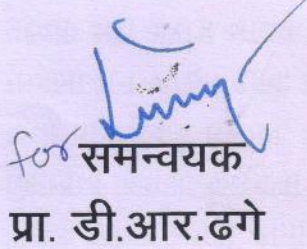 for समन्वयक
प्रा. डी.आर.ढगे